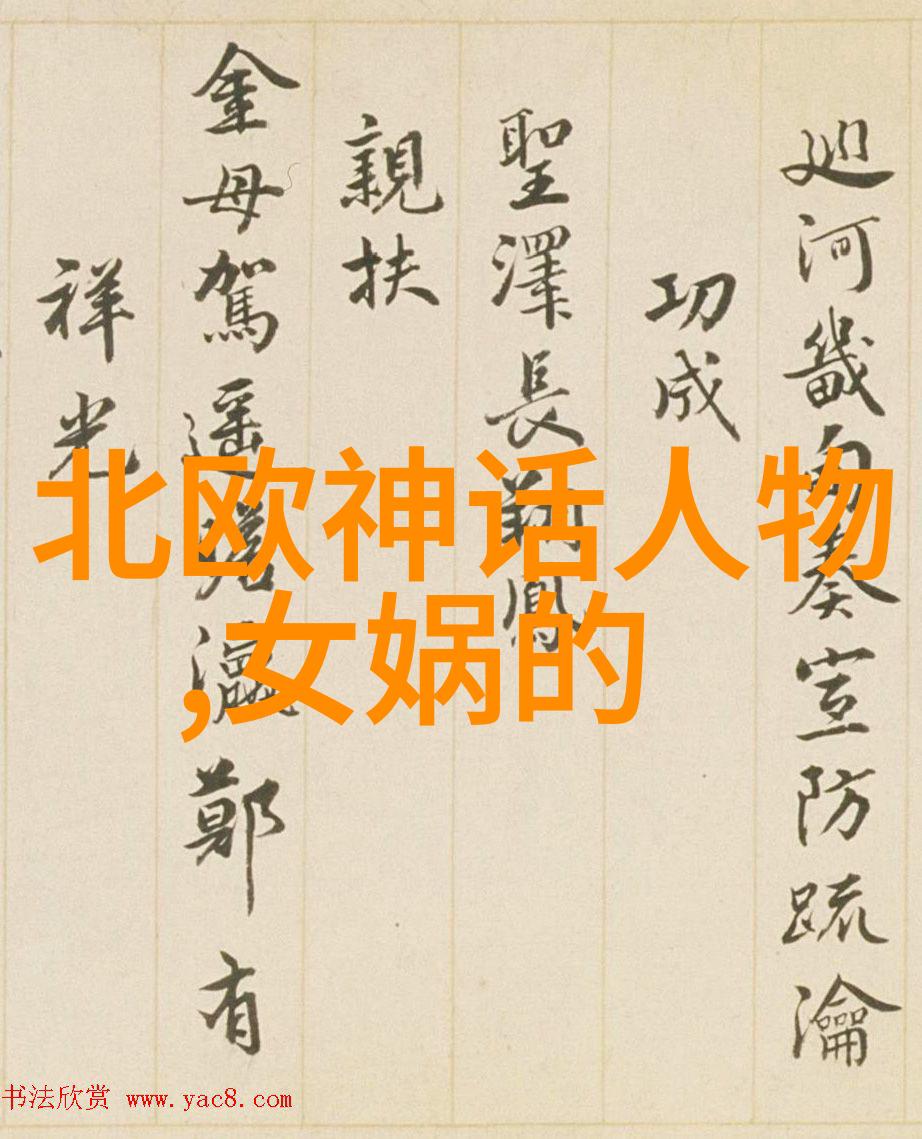 巡河畿甸奏宣防疏瀹
功成
聖澤長翔鳳
親扶
金母駕遥瞻瀛鄭有
祥光
北欧神话人物
,女娲的
书法欣赏 www.yac8.com